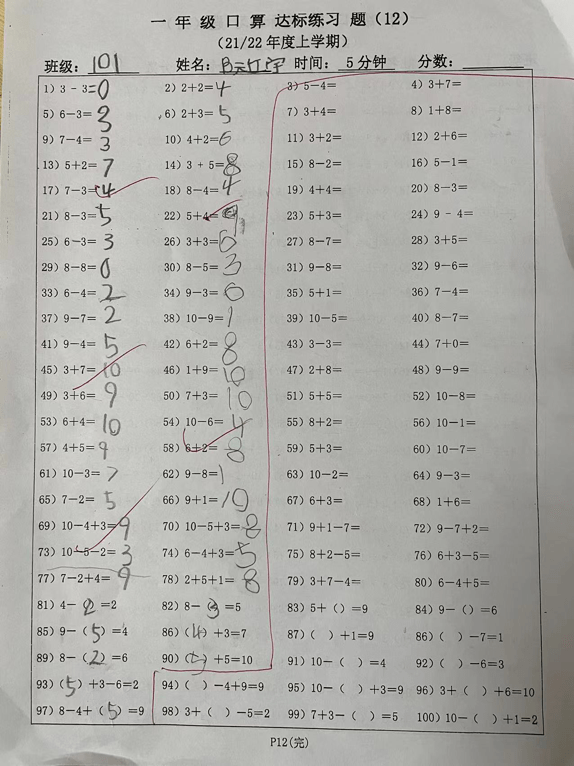 一 年 级 口 算 达标练习 题（12）
（21/22 年度上学期）
班级: 101 姓名: 时间: 5分钟 分数:
1）3 - 3=0 2）2+2=4 3）5-4= 4）3+7=
5）6-3=3 6）2+3=5 7）3+4= 8）1+8=
9）7-4=3 10）4+2=6 11）3+2= 12）2+6=
13）5+2=7 14）3 + 5=8 15）8-2= 16）5-1=
17）7-3=4 18）8-4=4 19）4+4= 20）8-3=
21）8-3=5 22）5+4=9 23）5+3= 24）9 - 4=
25）6-3=3 26）3+3=6 27）8-7= 28）3+5=
29）8-8=0 30）8-5=3 31）9-8= 32）9-6=
33）6-4=2 34）9-3=6 35）5+1= 36）7-4=
37）9-7=2 38）10-9=1 39）10-5= 40）8-7=
41）9-4=5 42）6+2=8 43）3-3= 44）7+0=
45）3+7=10 46）1+9=10 47）2+8= 48）9-9=
49）3+6=9 50）7+3=10 51）5+5= 52）10-8=
53）6+4=10 54）10-6=4 55）8+2= 56）10-1=
57）4+5=9 58）6+2=8 59）5+3= 60）10-7=
61）10-3=7 62）9-8=1 63）10-2= 64）9-3=
65）7-2=5 66）9+1=10 67）6+3= 68）1+6=
69）10-4+3=9 70）10-5+3=8 71）9+1-7= 72）9-7+2=
73）10-5-2=3 74）6-4+3=5 75）8+2-5= 76）6+3-5=
77）7-2+4=9 78）2+5+1=8 79）3+7-4= 80）6-4+5=
81）4-2=2 82）8-3=5 83）5+（）=9 84）9-（）=6
85）9-（5）=4 86）（4）+3=7 87）（ ）+1=9 86）（ ）-7=1
89）8-（2）=6 90）（5）+5=10 91）10-（ ）=4 92）（ ）-6=3
93）（5）+3-6=2 94）（ ）-4+9=9 95）10-（ ）+3=9 96）3+（ ）+6=10
97）8-4+（5）=9 98）3+（ ）-5=2 99）7+3-（ ）=5 100）10-（ ）+1=2
P12(完)